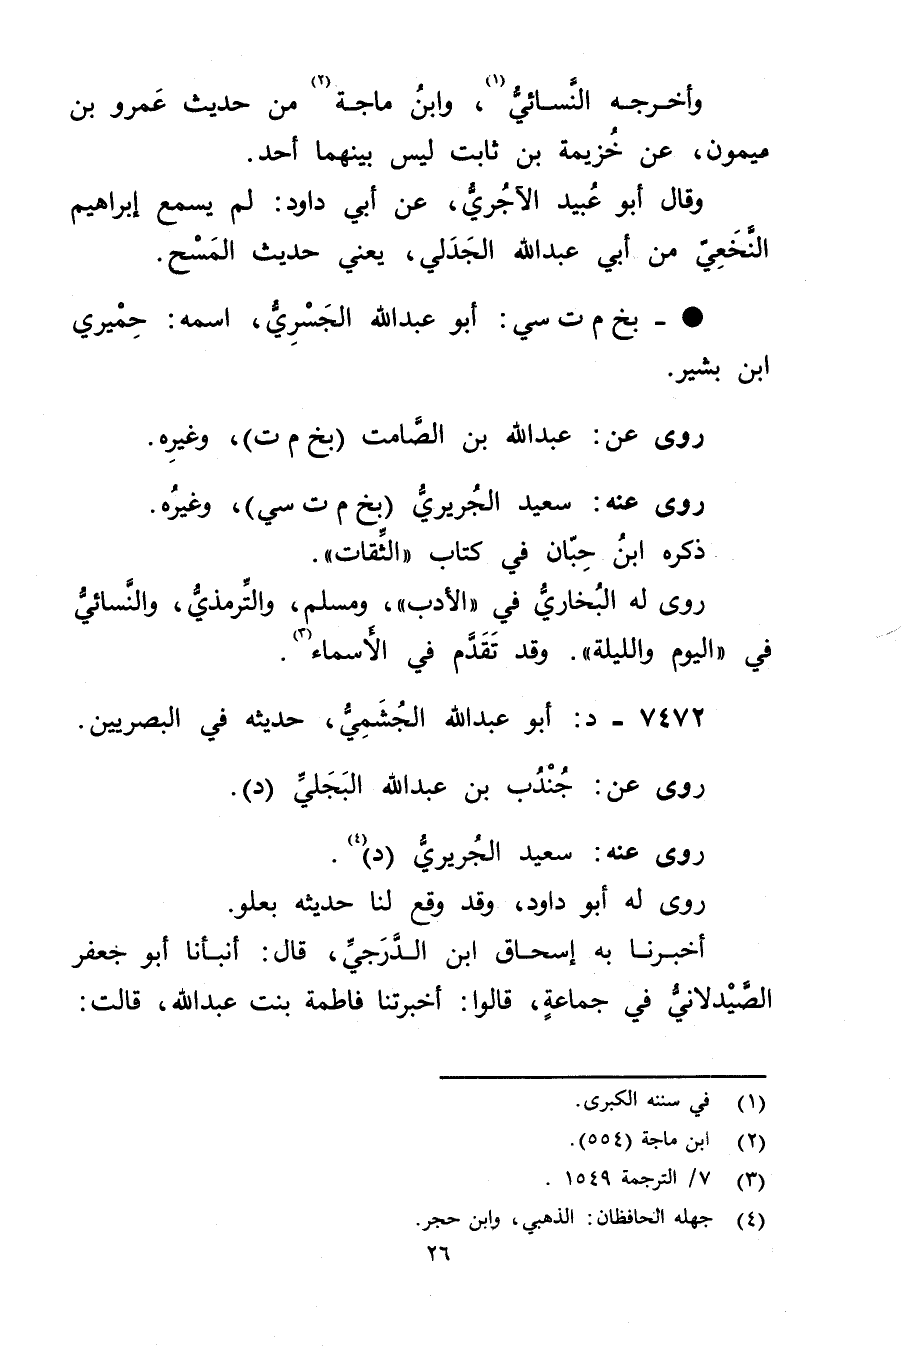 وأخـرجـه النَّسـائيُّ(١)، وابنُ ماجـة(٢) من حديث عَمرو بن
ميمون، عن خُزيمة بن ثابت ليس بينهما أحد.
وقال أبو عُبيد الآجُريُّ، عن أبي داود: لم يسمع إبراهيم
النَّخَعِيّ من أبي عبدالله الجَدَلي، يعني حديث المَسْح.
● ـ بخ م ت سي: أبو عبدالله الجَسْرِيُّ، اسمه: حِمْيري
ابن بشير.
روى عن: عبدالله بن الصَّامت (بخ م ت)، وغيرِه.
روى عنه: سعيد الجُريريُّ (بخ م ت سي)، وغيرُه.
ذكره ابنُ حِبّان في كتاب «الثِّقات».
روى له البُخاريُّ في «الأدب»، ومسلم، والتِّرمذيُّ، والنَّسائيُّ
في «اليوم والليلة». وقد تَقَدَّم في الأَسماء(٣).
٧٤٧٢ ـ د: أبو عبدالله الجُشَمِيُّ، حديثه في البصريين.
روى عن: جُنْدُب بن عبدالله البَجَليِّ (د).
روى عنه: سعيد الجُريريُّ (د)(٤).
روى له أبو داود، وقد وقع لنا حديثه بعلو.
أخبـرنـا به إسحـاق ابن الـدَّرَجيِّ، قال: أنبـأنا أبو جعفر
الصَّيْدلانيُّ في جماعةٍ، قالوا: أخبرتنا فاطمة بنت عبدالله، قالت:
(١) في سننه الكبرى.
(٢) ابن ماجة (٥٥٤).
(٣) ٧/ الترجمة ١٥٤٩ .
(٤) جهله الحافظان: الذهبي، وابن حجر.
٢٦